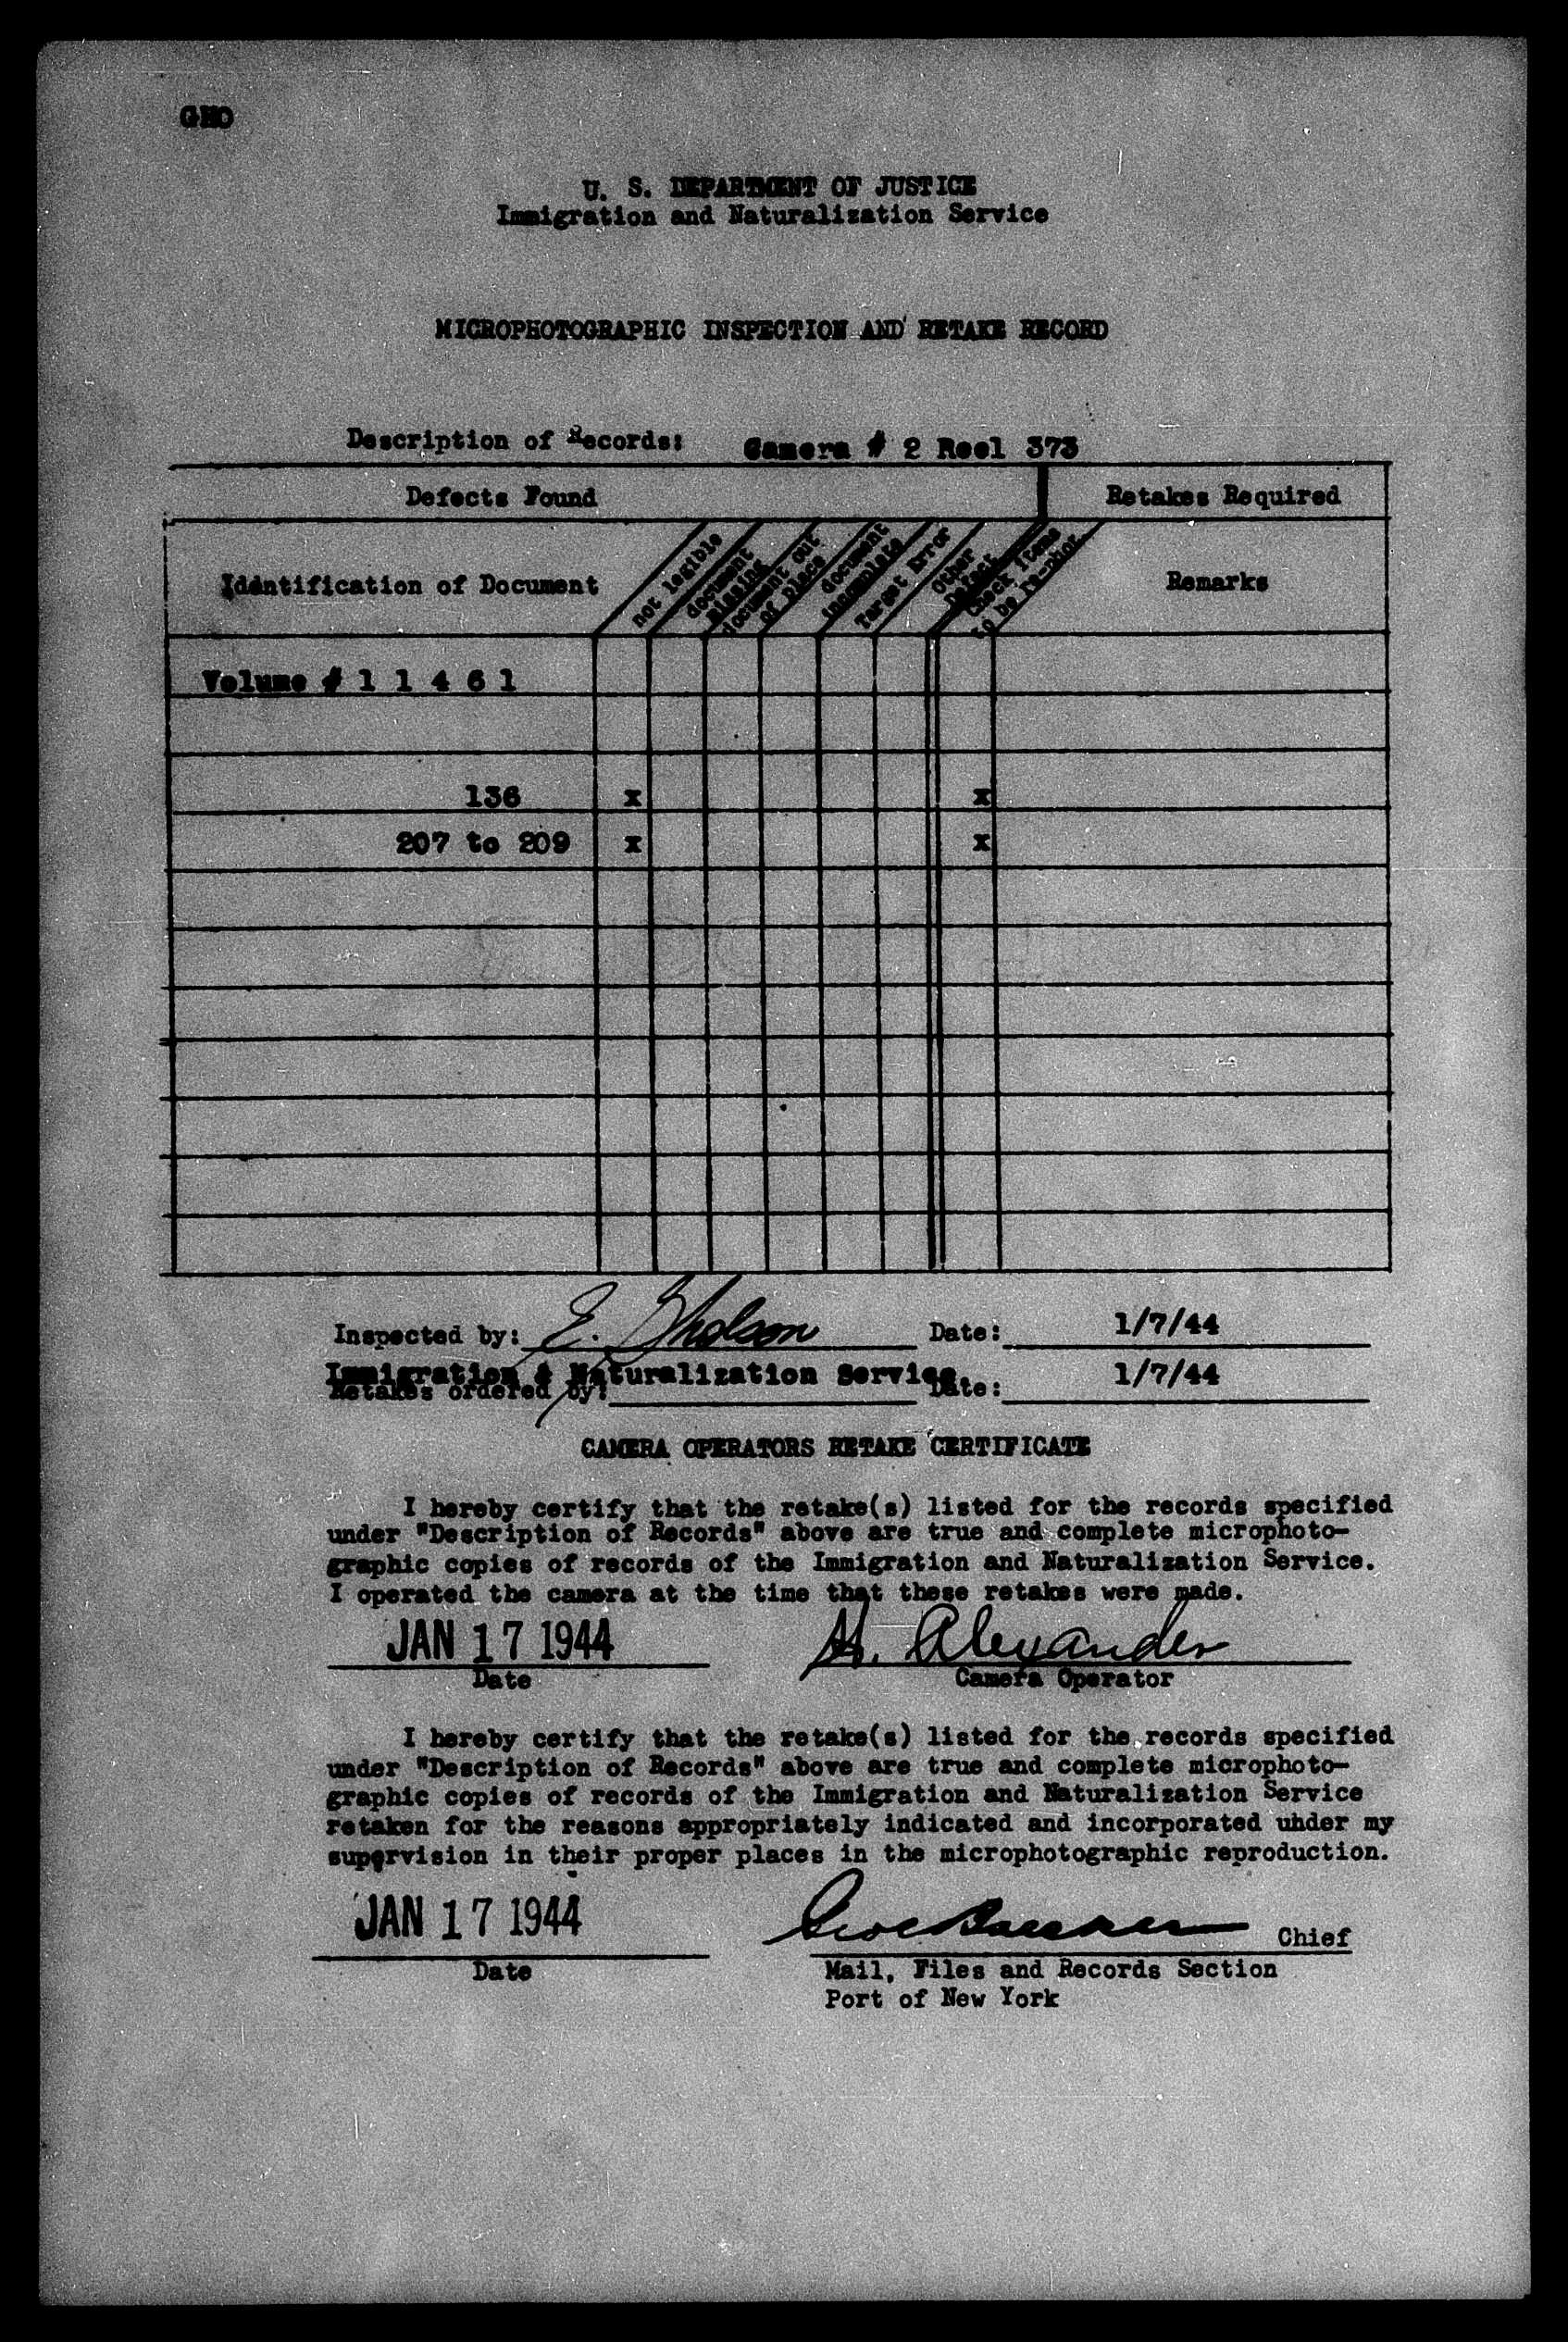 GHO
U. S. DEPARTMENT OF JUSTICE
Immigration and Naturalization Service
MICROPHOTOGRAPHIC INSPECTION AND RETAKE RECORD
Description of Records: Camera # 2 Reel 373
Defects Found Retakes Required
Identification of Document
not legible
document missing
document out of place
document incomplete
Target Error
Other Defect
Check items to be re-phot
Remarks
Volume # 1 1 4 6 1
136 x x
207 to 209 x x
Inspected by: E. Gholson Date: 1/7/44
Immigration & Naturalization Service. 1/7/44
Retakes ordered by: Date:
CAMERA OPERATORS RETAKE CERTIFICATE
I hereby certify that the retake(s) listed for the records specified
under "Description of Records" above are true and complete microphoto-
graphic copies of records of the Immigration and Naturalization Service.
I operated the camera at the time that these retakes were made.
JAN 17 1944 H. Alexander
Date Camera Operator
I hereby certify that the retake(s) listed for the records specified
under "Description of Records" above are true and complete microphoto-
graphic copies of records of the Immigration and Naturalization Service
retaken for the reasons appropriately indicated and incorporated uhder my
supervision in their proper places in the microphotographic reproduction.
JAN 17 1944 Chief
Date Mail, Files and Records Section
Port of New York